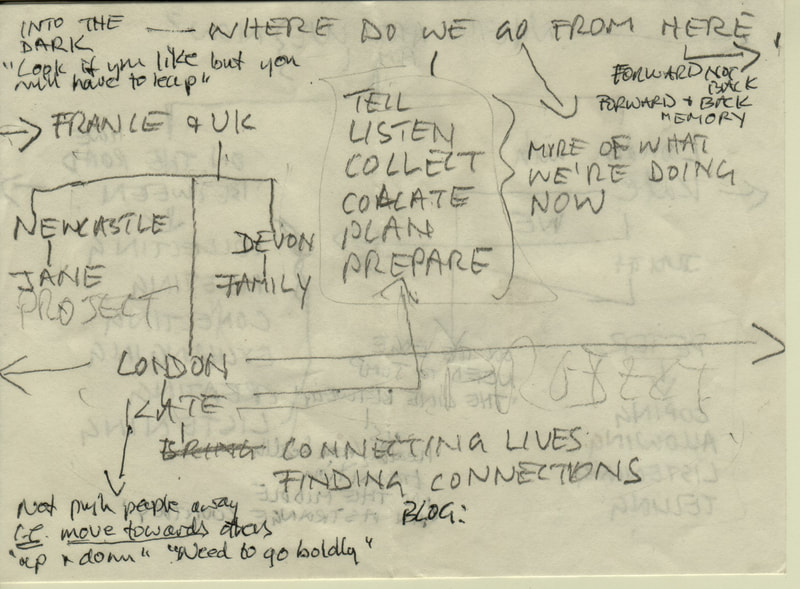 INTO THE DARK — WHERE DO WE GO FROM HERE,
"Look if you like but you
will have to leap"
FORWARD NOT
BACK
FORWARD + BACK
MEMORY
FRANCE & UK
TELL
LISTEN
COLLECT
COALATE
PLAN
PREPARE
MORE OF WHAT
WE'RE DOING
NOW
NEWCASTLE
JANE
PROJECT
DEVON
FAMILY
LONDON
KATE
BRING CONNECTING LIVES
FINDING CONNECTIONS
BLOG:
Not push people away
I.E. move towards others
"up & down" "Need to go boldly"